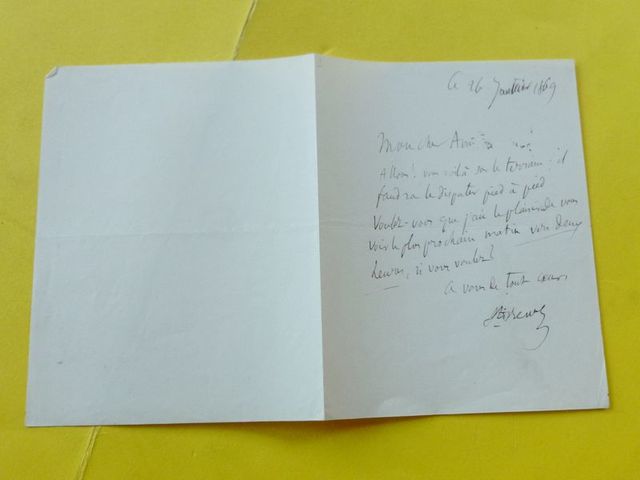 Ce 26 Janvier 1869
Mon cher Ami
Allons! vous voilà sur le terrain: il
faudra le disputer pied à pied
Voulez-vous que j'aie le plaisir de vous
voir le plus prochain matin vers deux
heures, si vous voulez?
A vous de tout coeur,
Ste Beuve